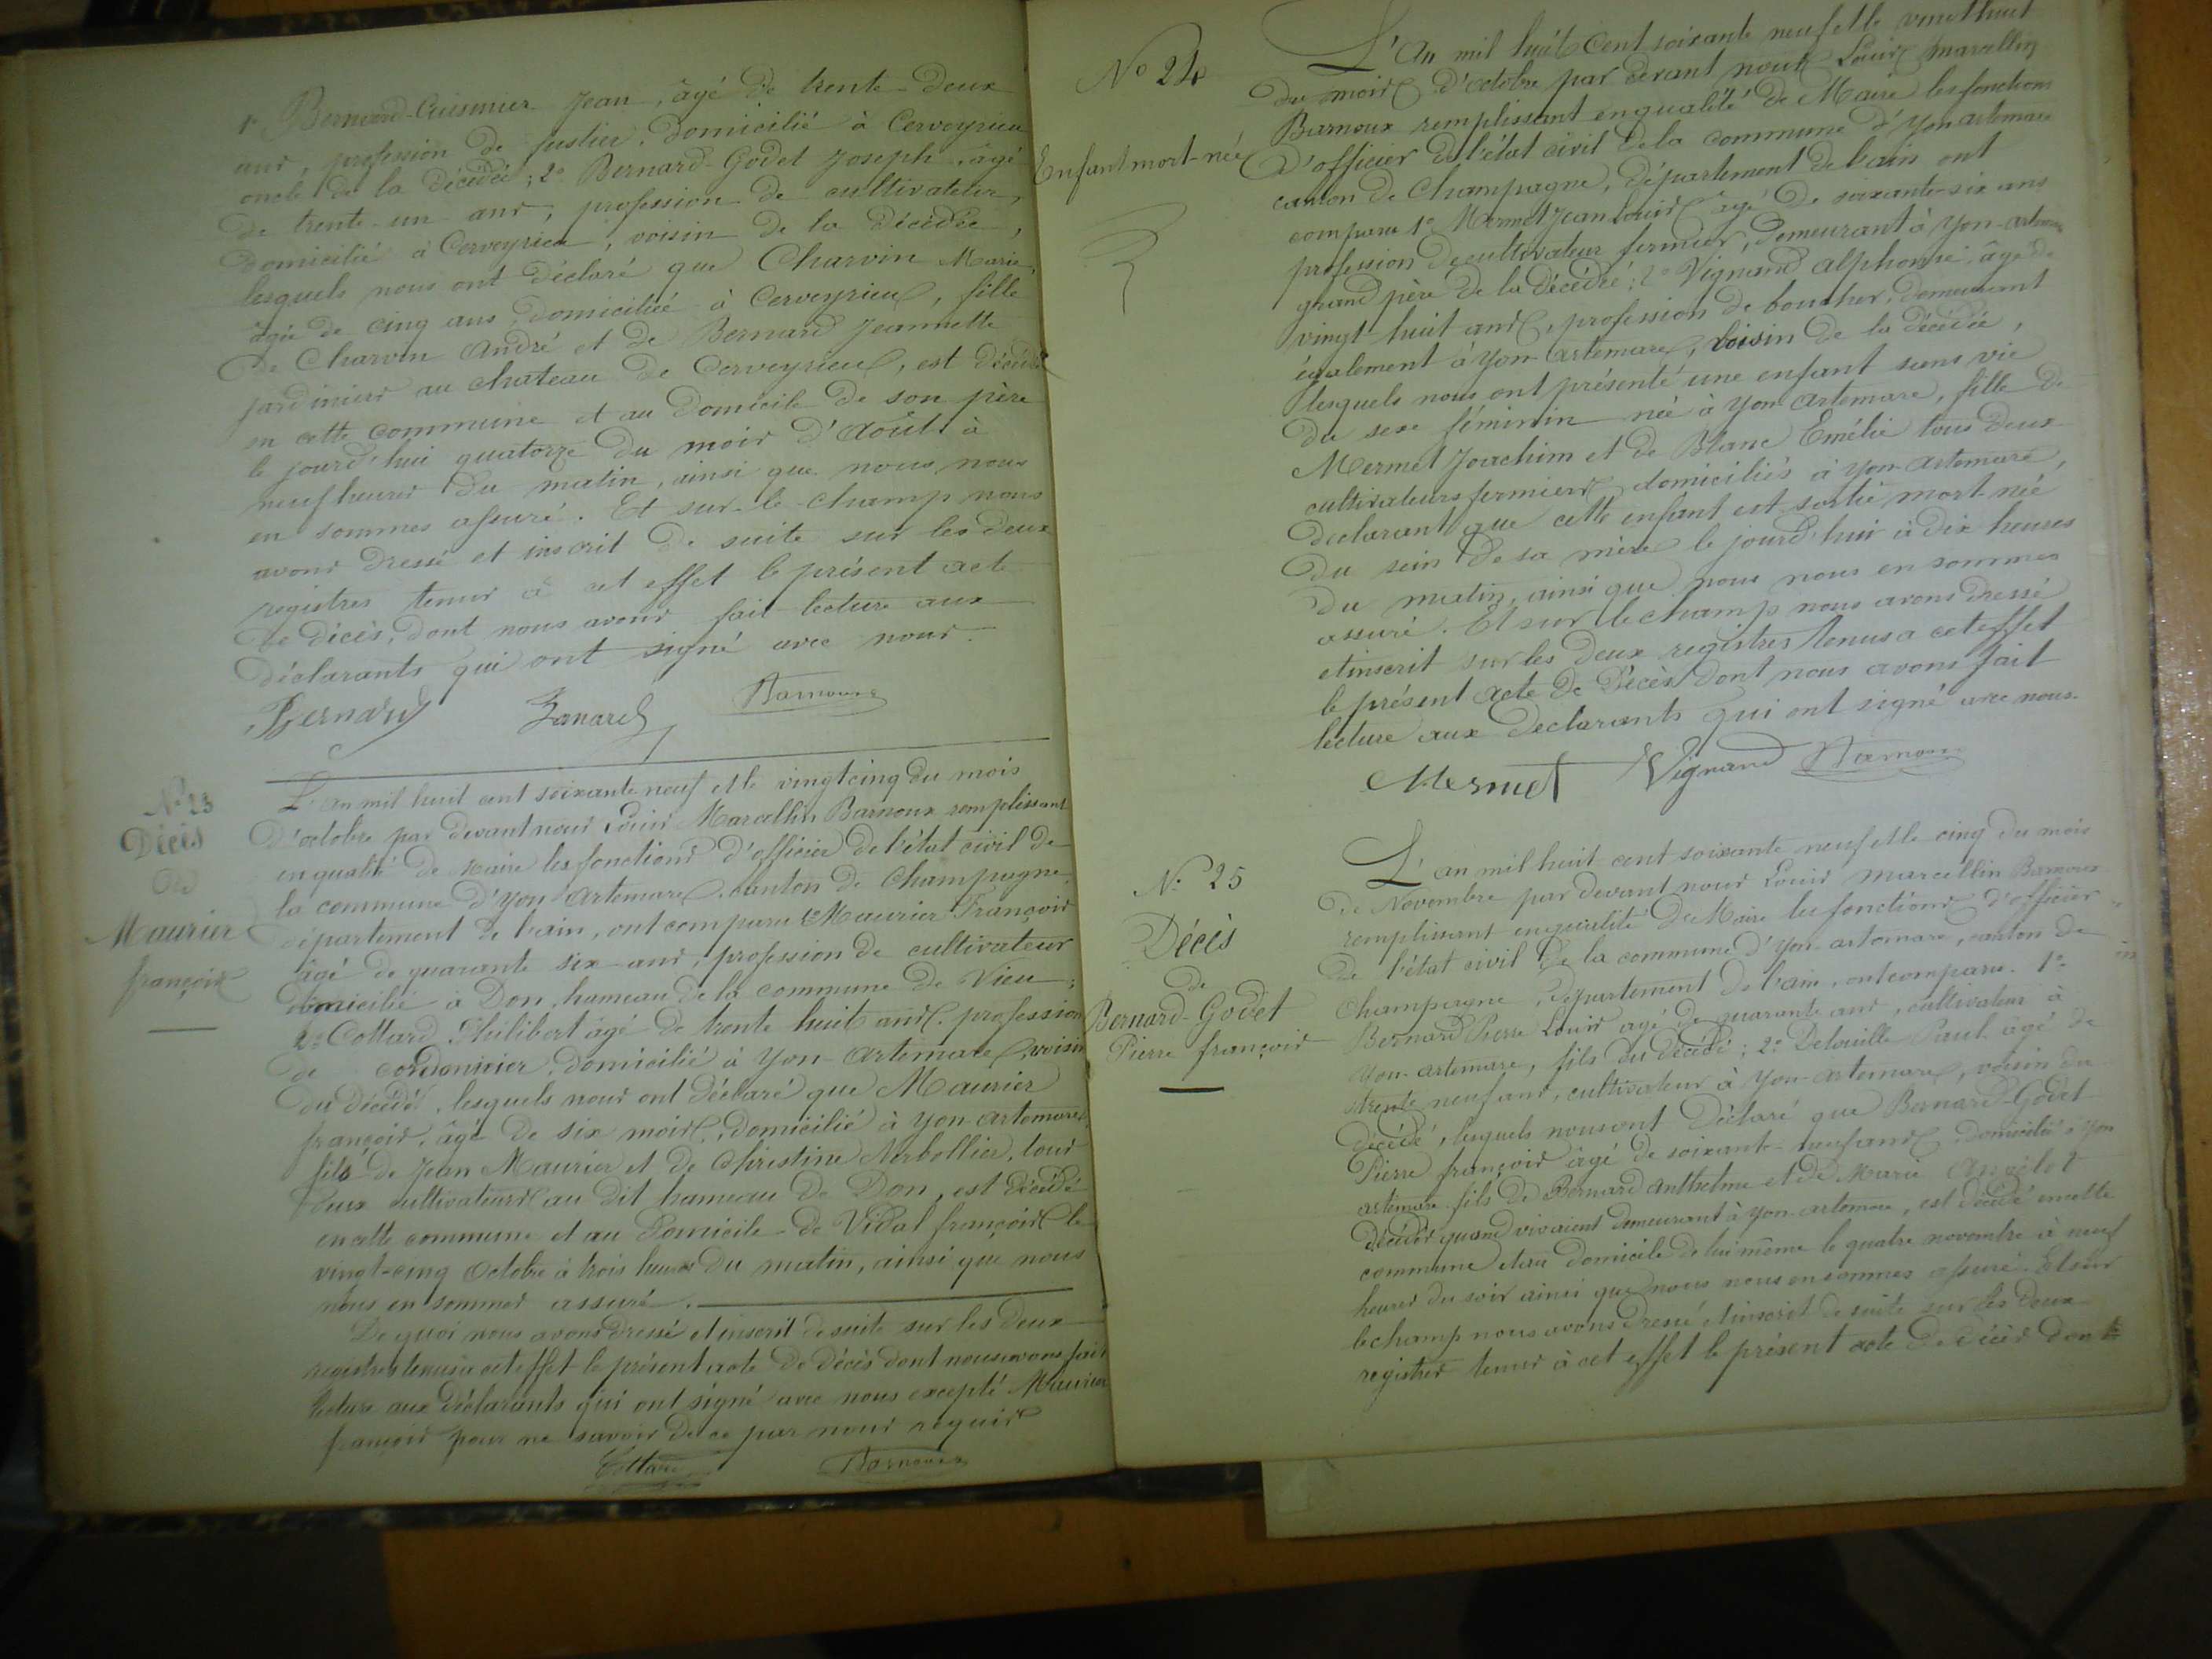 1º Bernard-Cuisinier Jean, âgé de trente-deux
ans, profession de justier, domicilié à Cerveyrieu
oncle de la décédée; 2º Bernard-Godet Joseph, âgé
de trente-un ans, profession de cultivateur,
domicilié à Cerveyrieu, voisin de la décédée,
lesquels nous ont déclaré que Charvin Marie,
âgée de cinq ans, domiciliée à Cerveyrieu, fille
de Charvin André et de Bernard Jeannette
jardinier au chateau de Cerveyrieu, est décédée
en cette commune et au domicile de son père
le jourd'hui quatorze du mois d'Août à
neuf heures du matin, ainsi que nous nous
en sommes assuré. Et sur-le-champ nous
avons dressé et inscrit de suite sur les deux
registres tenus à cet effet le présent acte
de décès, dont nous avons fait lecture aux
déclarants qui ont signé avec nous.
Bernard Barnoux
Nº 23
Décès
de
Maurier
françois
L'an mil huit cent soixante neuf et le vingt cinq du mois
d'octobre par devant nous Louis Marcellin Barnoux remplissant
en qualité de maire les fonctions d'officier de l'état civil de
la commune d'Yon artemare, canton de Champagne,
département de l'ain, ont comparu 1º Maurier François
âgé de quarante six ans, profession de cultivateur
domicilié à Don, hameau de la commune de Vieu;
2º Cottard Philibert âgé de trente huit ans, profession
de cordonnier, domicilié à Yon-Artemare, voisin
du décédé, lesquels nous ont déclaré que Maurier
françois, âgé de six mois, domicilié à Yon-artemare,
fils de Jean Maurier et de Christine Nerbollier, tous
deux cultivateurs au dit hameau de Don, est décédé
en cette commune et au Domicile de Vidal françois le
vingt-cinq Octobre à trois heures du matin, ainsi que nous
nous en sommes assuré.
De quoi nous avons dressé et inscrit de suite sur les deux
registres tenus à cet effet le présent acte de décès dont nous avons fait
lecture aux déclarants qui ont signé avec nous excepté Maurier
françois pour ne savoir de ce par nous requis
Cottard Barnoux
Nº 24
Enfant mort-née
L'An mil huit cent soixante neuf et le vingt huit
du mois d'octobre par devant nous Louis Marcellin
Barnoux remplissant en qualité de Maire les fonctions
d'officier de l'état civil de la commune d'Yon artemare
canton de Champagne, département de l'ain ont
comparu 1º Mermet Jean Louis âgé de soixante-six ans
profession de cultivateur fermier, demeurant à Yon-artemare
grand père de la décédée; 2º Vignand alphonse, âgé de
vingt huit ans, profession de boucher, demeurant
également à Yon-artemare, voisin de la décédée,
lesquels nous ont présenté une enfant sans vie
du sexe féminin née à Yon artemare, fille de
Mermet Joachim et de Blanc Emélie tous deux
cultivateurs fermiers domiciliés à Yon-artemare,
declarant que cette enfant est sortie mort-née
du sein de sa mère le jourd'hui à dix heures
du matin, ainsi que nous nous en sommes
assuré. Et sur le champ nous avons dressé
et inscrit sur les deux registres tenus a cet effet
le présent acte de Décès dont nous avons fait
lecture aux declarants qui ont signé avec nous.
Mermet Vignand Barnoux
Nº 25
Décès
de
Bernard-Godet
Pierre françois
L'an mil huit cent soixante neuf et le cinq du mois
de Novembre par devant nous Louis marcellin Barnoux
remplissant en qualité de Maire les fonctions d'officier
de l'état civil de la commune d'Yon-artemare, canton de
Champagne, département de l'ain, ont comparu. 1º
Bernard Pierre Louis agé de quarante ans, cultivateur à
Yon-artemare, fils du décédé; 2º Delouille Paul âgé de
trente neuf ans, cultivateur à Yon-artemare, voisin du
décédé, lesquels nous ont déclaré que Bernard-Godet
Pierre françois âgé de soixante-neuf ans, domicilié à Yon
artemare fils de Bernard anthelme et de Marie Ancelet
décédés quand vivaient demeurant à Yon-artemare, est décédé en cette
commune et au domicile de lui même le quatre novembre à neuf
heures du soir ainsi que nous nous en sommes assuré. Et sur
le champ nous avons dressé et inscrit de suite sur les deux
registres tenus à cet effet le présent acte de décès dont